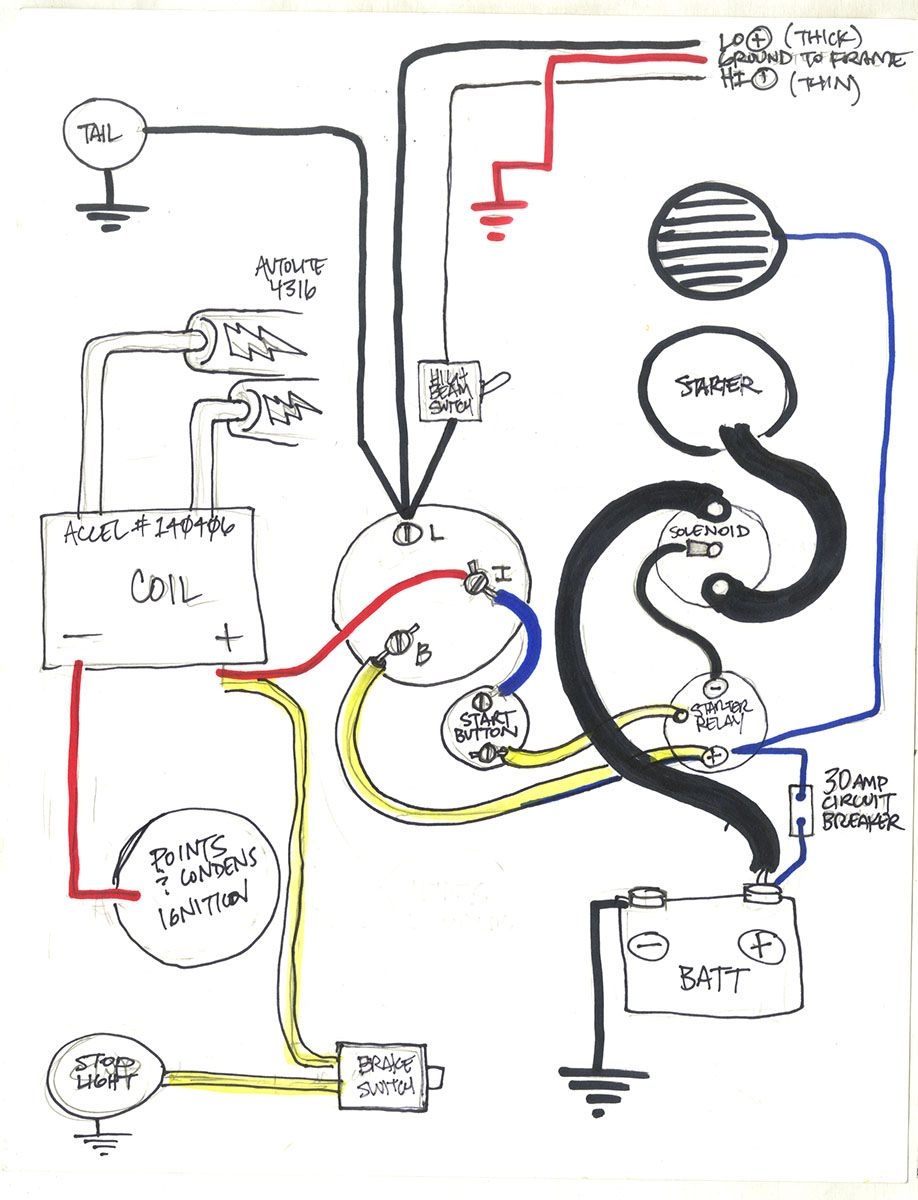 LO + (THICK)
GROUND TO FRAME
HI + (THIN)
TAIL
AUTOLITE
4316
HIGH
BEAM
SWTCH
STARTER
ACCEL # 140406
COIL
— +
L
I
B
SOLENOID
START
BUTTON
-
STARTER
RELAY
+
30 AMP
CIRCUIT
BREAKER
POINTS
? CONDENS
IGNITION
- +
BATT
STOP
LIGHT
BRAKE
SWITCH